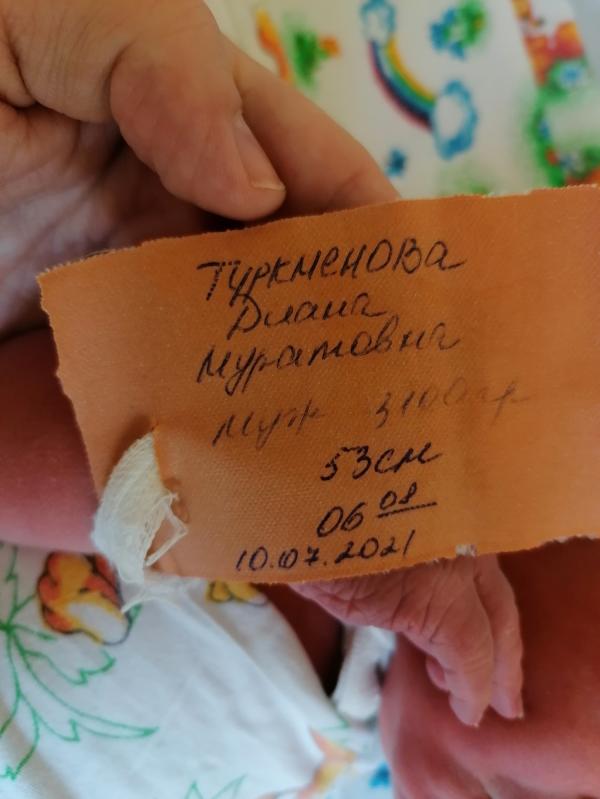 Туркменова
Диана
Муратовна
Муж 3100гр
53см
06 08
10.07.2021